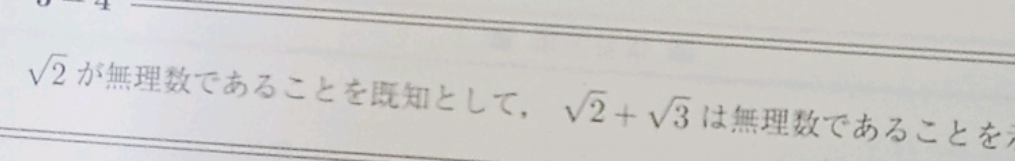 √2 が無理数であることを既知として, √2 + √3 は無理数であることを